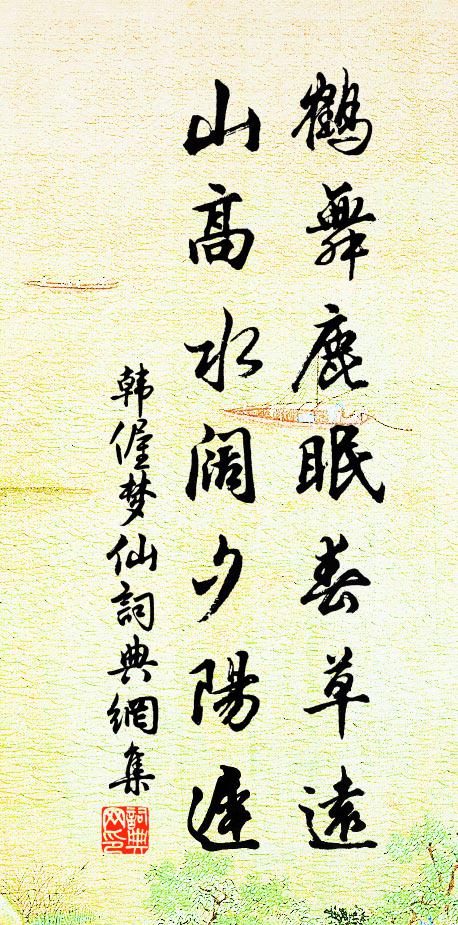 鶴舞鹿眠春草遠
山高水闊夕陽遲
韩偓梦仙詞典網集
詞典网印